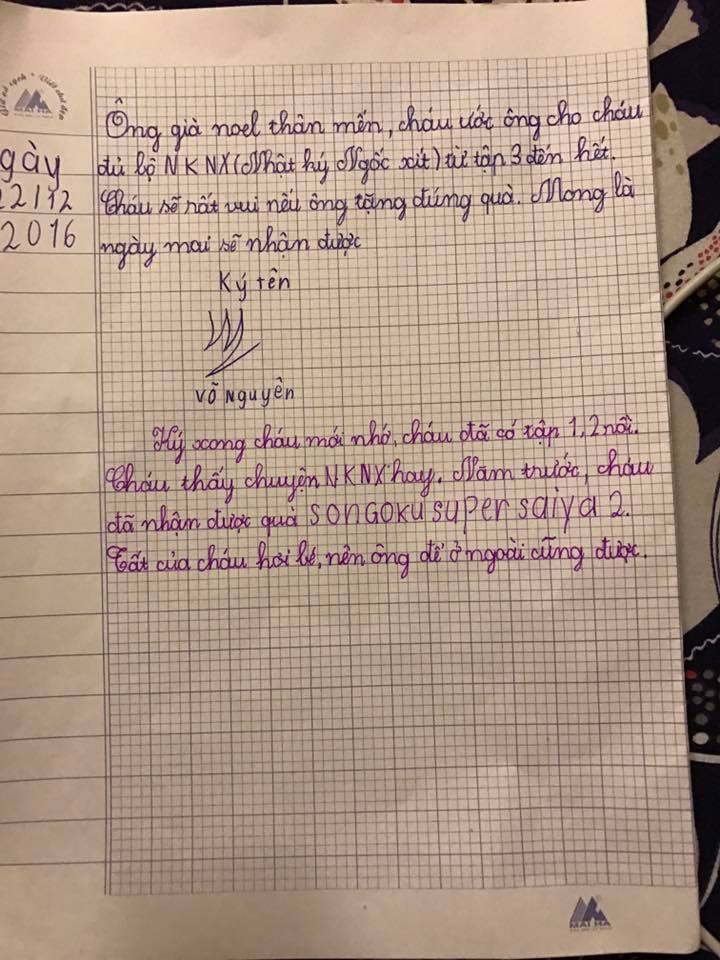 Ông già noel thân mến, cháu ước ông cho cháu
đủ bộ NKNX(Nhật ký Ngốc xít) từ tập 3 đến hết.
Cháu sẽ rất vui nếu ông tặng đúng quà. Mong là
ngày mai sẽ nhận được
gày
22112
2016
Ký tên
Võ Nguyên
Ký xong cháu mới nhớ, cháu đã có tập 1,2 rồi.
Cháu thấy chuyện NKNX hay. Năm trước, cháu
đã nhận được quà SONGOKU super saiya 2.
Tất của cháu hơi bé, nên ông để ở ngoài cũng được.
MAI HA